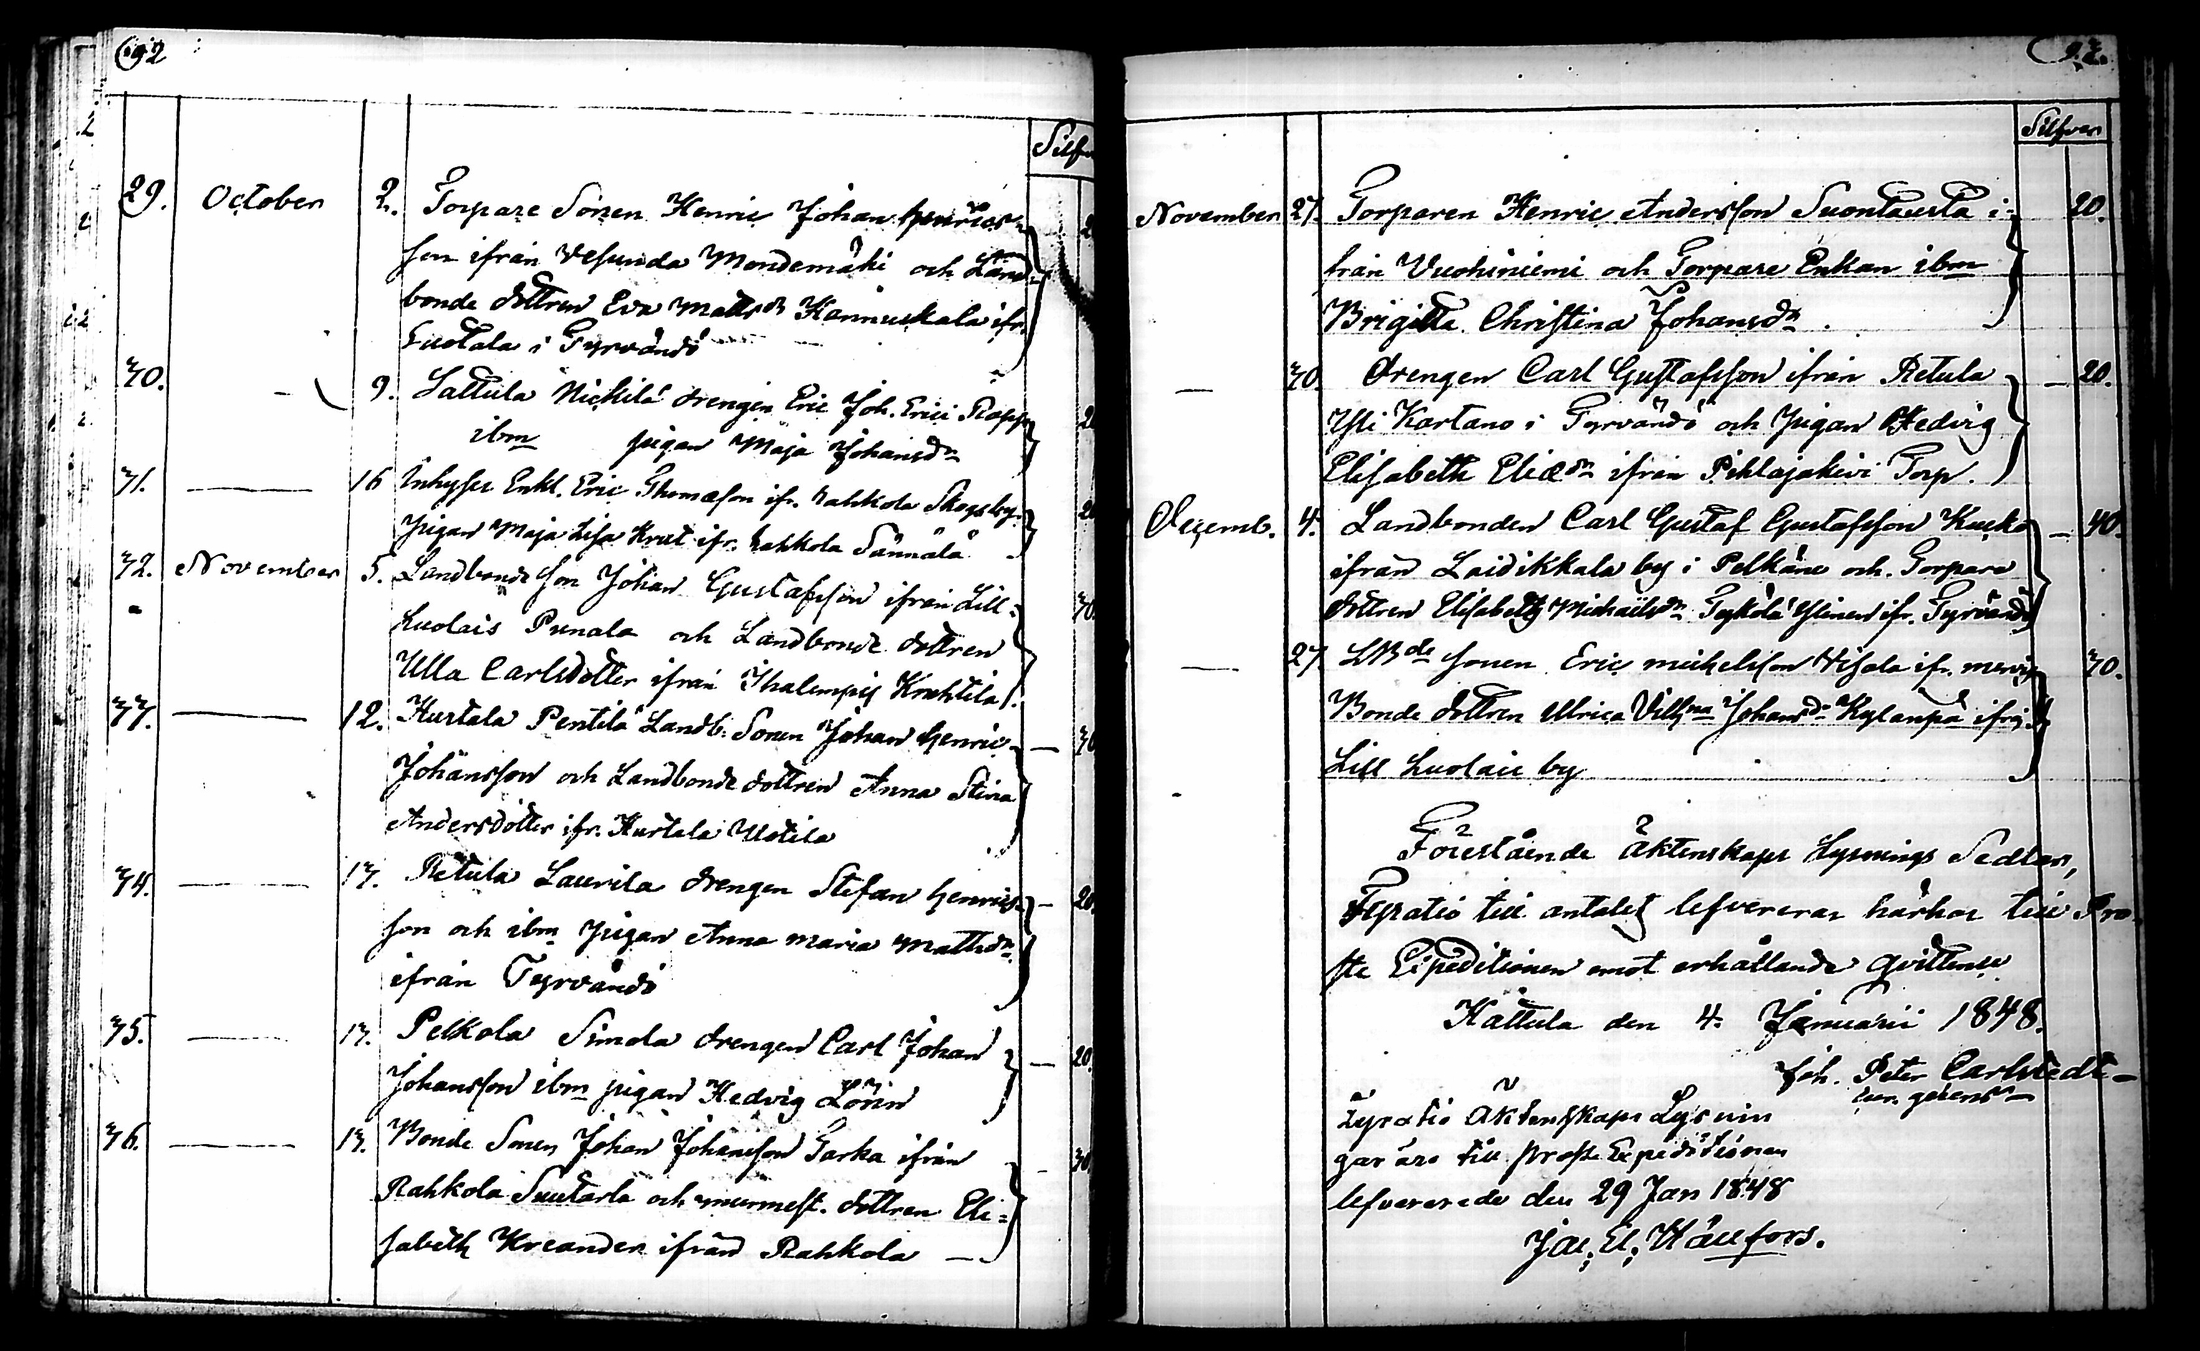 92
Silfv
29. October 2. Torpare Sonen Henric Johan Henrics=
son ifrån Vesunda Mondemäki och Land=
bonde dottren Eva Mattsdr Hannuskala ifr.
Suotala i Tyrvändö
30. - 9. Sattula Nickilä drengen Eric Joh. Erici Rapp 20
ibm pigan Maja Johansdr
31. — 16 Inhyses Enkl. Eric Thomasson ifr. Rahkola Skogsby 20
Pigan Maja Lisa Krut ifr. Rahkola Sännälä
32. November 5. Landbonde son Johan Gustafsson ifrån Lill=
Luolais Punala och Landbonde dottren 30.
Ulla Carlsdotter ifrån Ihalempis Krahtila
33. — 12. Hurtala Pentilä Landb. Sonen Johan Henric — 30
Johansson och Landbonde dottren Anna Stina
Andersdotter ifr. Hurtala Uotila
34. — 13. Retula Laurila drengen Stefan Henrics= — 20.
son och ibm Pigan Anna Maria Mattsdr
ifrån Tyrvändö
35. — 13. Pelkola Simola drengen Carl Johan — 20.
Johansson ibm pigan Hedvig Lörin
36. — 13. Bonde Sonen Johan Johansson Sarka ifrån — 30.
Rahkola Suutarla och murmest. dottren Eli=
sabeth Kreander ifrån Rahkola —
93.
Silfver
November 27. Torparen Henric Andersson Suontausta i= 20.
från Vuohiniemi och Torpare Enkan ibm
Brigitta Christina Johansdr.
— 30. Drengen Carl Gustafsson ifrån Retula — 20.
Yli Kartano i Tyrvändö och Pigan Hedvig
Elisabeth Eliædr ifrån Pihlajakivi Torp.
Decemb. 4. Landbonden Carl Gustaf Gustafsson Kucko — 40.
ifrån Laidikkala by i Pelkäne och Torpare
dottren Elisabeth Michailsdr Tykölä Ylinen ifr. Tyrvändö
— 27. LBde sonen Eric Michelsson ifr. 30.
Bonde dottren Ulrica Vilhna Johansdr Kylänpä ifrån
Lill Luolais by
Förestående Äktenskaps Lysnings Sedlar,
Fyratio till antalet lefvereras härhos till Pro=
ste Expeditionen emot erhållande qvittence
Hattula den 4. Januarii 1848.
Joh. Peter Carlstedt —
Fyratio Äktenskaps Lysnin
gar äro till Proste Expeditionen
lefvererade den 29 Jan 1848
Jac, El, Hällfors.